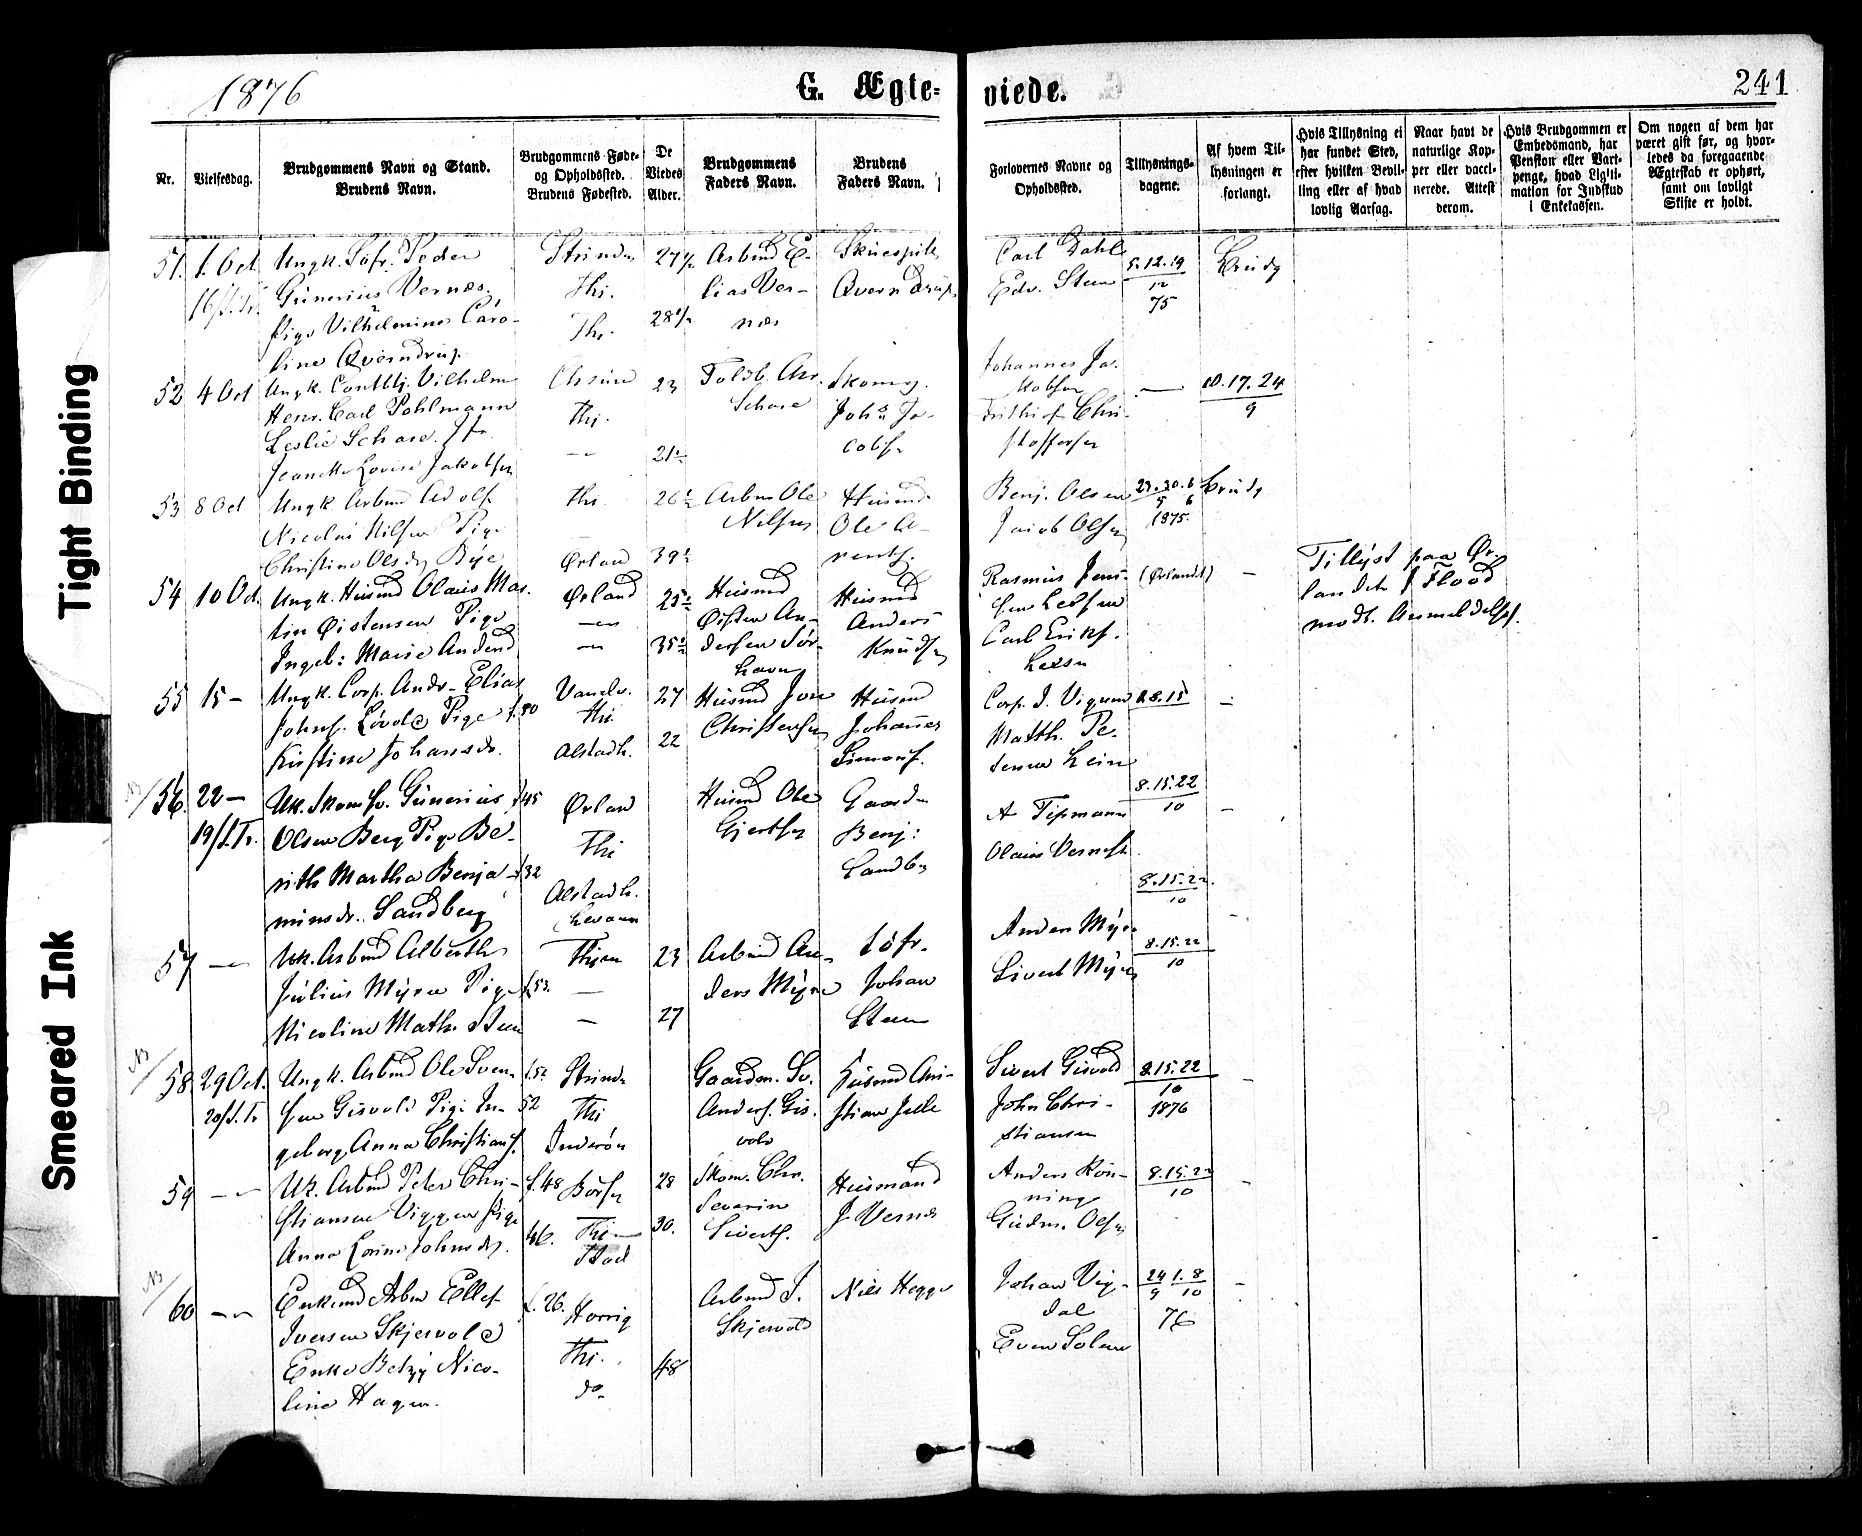 1876
G. Ægte-
viede.
241
Nr.
Vielsesdag.
Brudgommens Navn og Stand.
Brudens Navn.
Brudgommens Føde-
og Opholdssted.
Brudens Fødested.
De
Viedes
Alder.
Brudgommens
Faders Navn.
Brudens
Faders Navn.
Forlovernes Navne og
Opholdssted.
Tillysnings-
dagene.
Af hvem Til-
lysningen er
forlangt.
Hvis Tillysning ei
har fundet Sted,
efter hvilken Bevil-
ling eller af hvad
lovlig Aarsag.
Naar havt de
naturlige Kop-
per eller vacci-
nerede. Attest
derom.
Hvis Brudgommen er
Embedsmand, har
Pension eller Vart-
penge, hvad Ligiti-
mation for Indskud
i Enkekassen.
Om nogen af dem har
været gift før, og hvor-
ledes da foregaaende
Ægteskab er ophørt,
samt om lovligt
Skifte er holdt.
51. 1. Oct. Ungk. Søfr. Peder
Gunerius Vernæs.
Pige Vilhelmine Caro-
line Qverndrup.
Thj.
Arbmd E-
lias Ver-
næs
Skuespill.
Qverndrup
Carl Dahl
Edv. Steen
5.12.19
12
75
Brudg
52 4 Oct Ungk. Vilhelm
Henr. Carl Pohlmann
Leslie Schare. Jfr.
Jeanette Lovise Jakobsen
Thj.
23
21½
Schare
Skomg.
Joh: Ja-
cobs.
Johannes Ja-
kobsen
Frithiof Chri-
stoffersen
10.17.24
9
53 8 Oct Ungk Arbmd Adolf
Nicolai Nilsen Pige
Christine Olsdr Bye
Thj
Ørland
26½
39½
Arbm Ole
Nilsen
Husmd.
Ole A-
rents.
Benj. Olsen
Jacob Olsen
23.30.6
5 6
1875.
Brudg
54 10 Oct. Ungk. Husmd Olaus Mar-
tin Øistensen Pige
Ingeb: Marie Andersd
Ørland
25½
35½
Husmd
Øisten An-
dersen Sør-
havn
Husmd
Anders
Knudsen
Rasmus Jens-
sen
Carl Eriks.
(Ørlandet)
Tillyst paa Ør-
landet f Flood
modt. Anmeldelse.
55 15 - Ungk. Corp. Andr. Elias
Johns. Pige
Kirstine Johansdr.
f. 50
Thj.
Alstadh.
27
22
Husmd Jon
Christensen
Husmd
Johannes
Simons.
Corp. J. Vigum
Matth. Pe-
dersen Lein
1.8.15
56. 22 -
19/S.Tr.
Uk. Skomsv. Gunerius f 45
Olsen Berg Pige Be-
rith Martha Benja- f 32
minsdr. Sandberg
Ørland
Thj
Alstadh.
Levanger
Husmd Ole
Gjertsen
Gaardm
Benj:
Sandb.
A Tipmann
8.15.22
10
8.15.22.
10
57 Uk. Arbmd Alberth
Julius Myren Pige
Nicoline Math. Steen
f. 53.
Thjem
23
27
Arbmd An-
ders Myren
Søfr.
Johan
Steen
Anders Myre
Sivert Myre
8.15.22
10
58 29 Oct.
20/S.Tr
Ungk. Arbmd Ole Sven-
sen Gisvold Pige In-
geborg Anna Christians.
f. 52
52
Strind
Thj
Inderøn
Gaardm. Sv.
Anders. Gis-
vold
Husmd Chri-
stian Jelle
Sivert Gisvold
John Chri-
stiansen
8.15.22
10
1876
59 Uk. Arbmd Peter Chri-
stiansen Viggen Pige
Anna Lorine Johnsdr.
f. 48
46.
Børsen
Thj
Stod
28
30.
Skom. Chr.
Severin
Siverts.
Husmand
J Vernes
Anders Røn-
ning
Gudm. Olsen
8.15.22
10
60 Enkemd Arbm Ellef
Iversen Skjervold
Enke Betzy Nico-
line Hagen.
f. 26.
Thj.
do
48
Arbmd I.
Skjervold
Nils Hegge
Johan Vig-
dal
Even Solem
24 1.8
9 10
76
Tight Binding
Smeared Ink